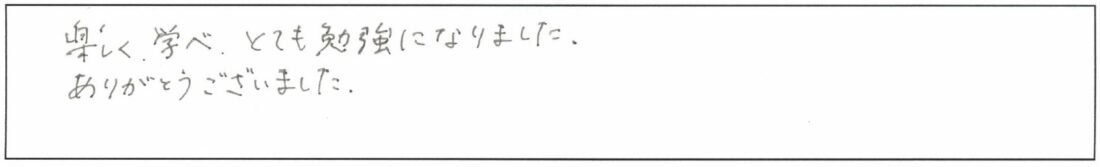 楽しく、学べ、とても勉強になりました。
ありがとうございました。